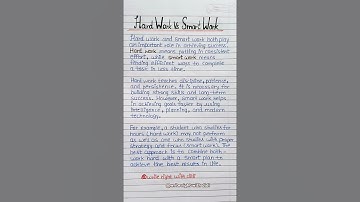 Hard Work Vs Smart Work
Hard work and smart work both play
an important role in achieving success.
Hard work means putting in consistent
effort, while smart work means
finding efficient ways to complete
a task in less time.
Hard work teaches discipline, patience,
and persistence. It is necessary for
building strong skills and long-term
success. However, smart work helps
in achieving goals faster by using
intelligence, planning, and modern
technology.
For example, a student who studies for
hours (hard work) may not perform
as well as one who studies with proper
strategy and focus (smart work). The
best approach is to combine both -
work hard with a smart plan to
achieve the best results in life.